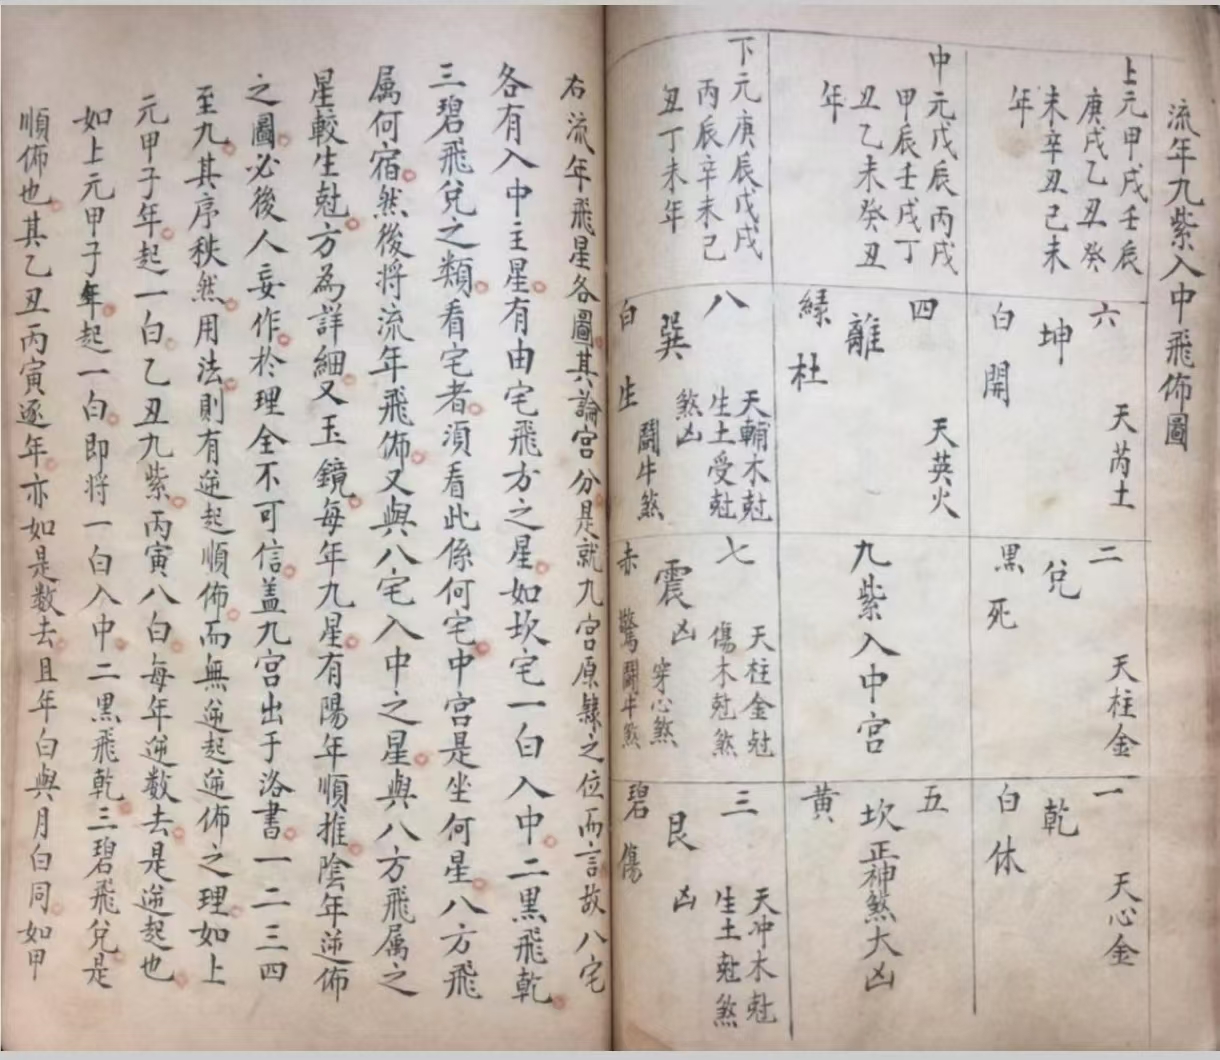 流年九紫入中飛佈圖
上元甲戌壬辰
庚戌乙丑癸
未辛丑己未
年
中元戊辰丙戌
甲辰壬戌丁
丑乙未癸丑
年
下元庚辰戊戌
丙辰辛未己
丑丁未年
六
坤
白開
天芮土
四
離
綠杜
天英火
八
巽
白生
天輔木尅
生土受尅
煞凶
鬪牛煞
二
兌
黑死
天柱金
九紫入中宮
七
震
赤
凶
天柱金尅
傷木尅煞
穿心煞
驚鬪牛煞
一
乾
白休
天心金
五
黃
坎正神煞大凶
三
艮
碧傷
凶
天冲木尅
生土尅煞
右流年飛星各圖其論宮分是就九宮原隸之位而言故八宅
各有入中主星有由宅飛方之星如坎宅一白入中二黑飛乾
三碧飛兌之類看宅者須看此係何宅中宮是坐何星八方飛
属何宿然後将流年飛佈又與八宅入中之星與八方飛属之
星較生尅方為詳細又玉鏡每年九星有陽年順推陰年逆佈
之圖必後人妄作於理全不可信蓋九宮出于洛書一二三四
至九其序秩然用法則有逆起順佈而無逆起逆佈之理如上
元甲子年起一白乙丑九紫丙寅八白每年逆数去是逆起也
如上元甲子年起一白即将一白入中二黑飛乾三碧飛兌是
順佈也其乙丑丙寅逐年亦如是数去且年白與月白同如甲